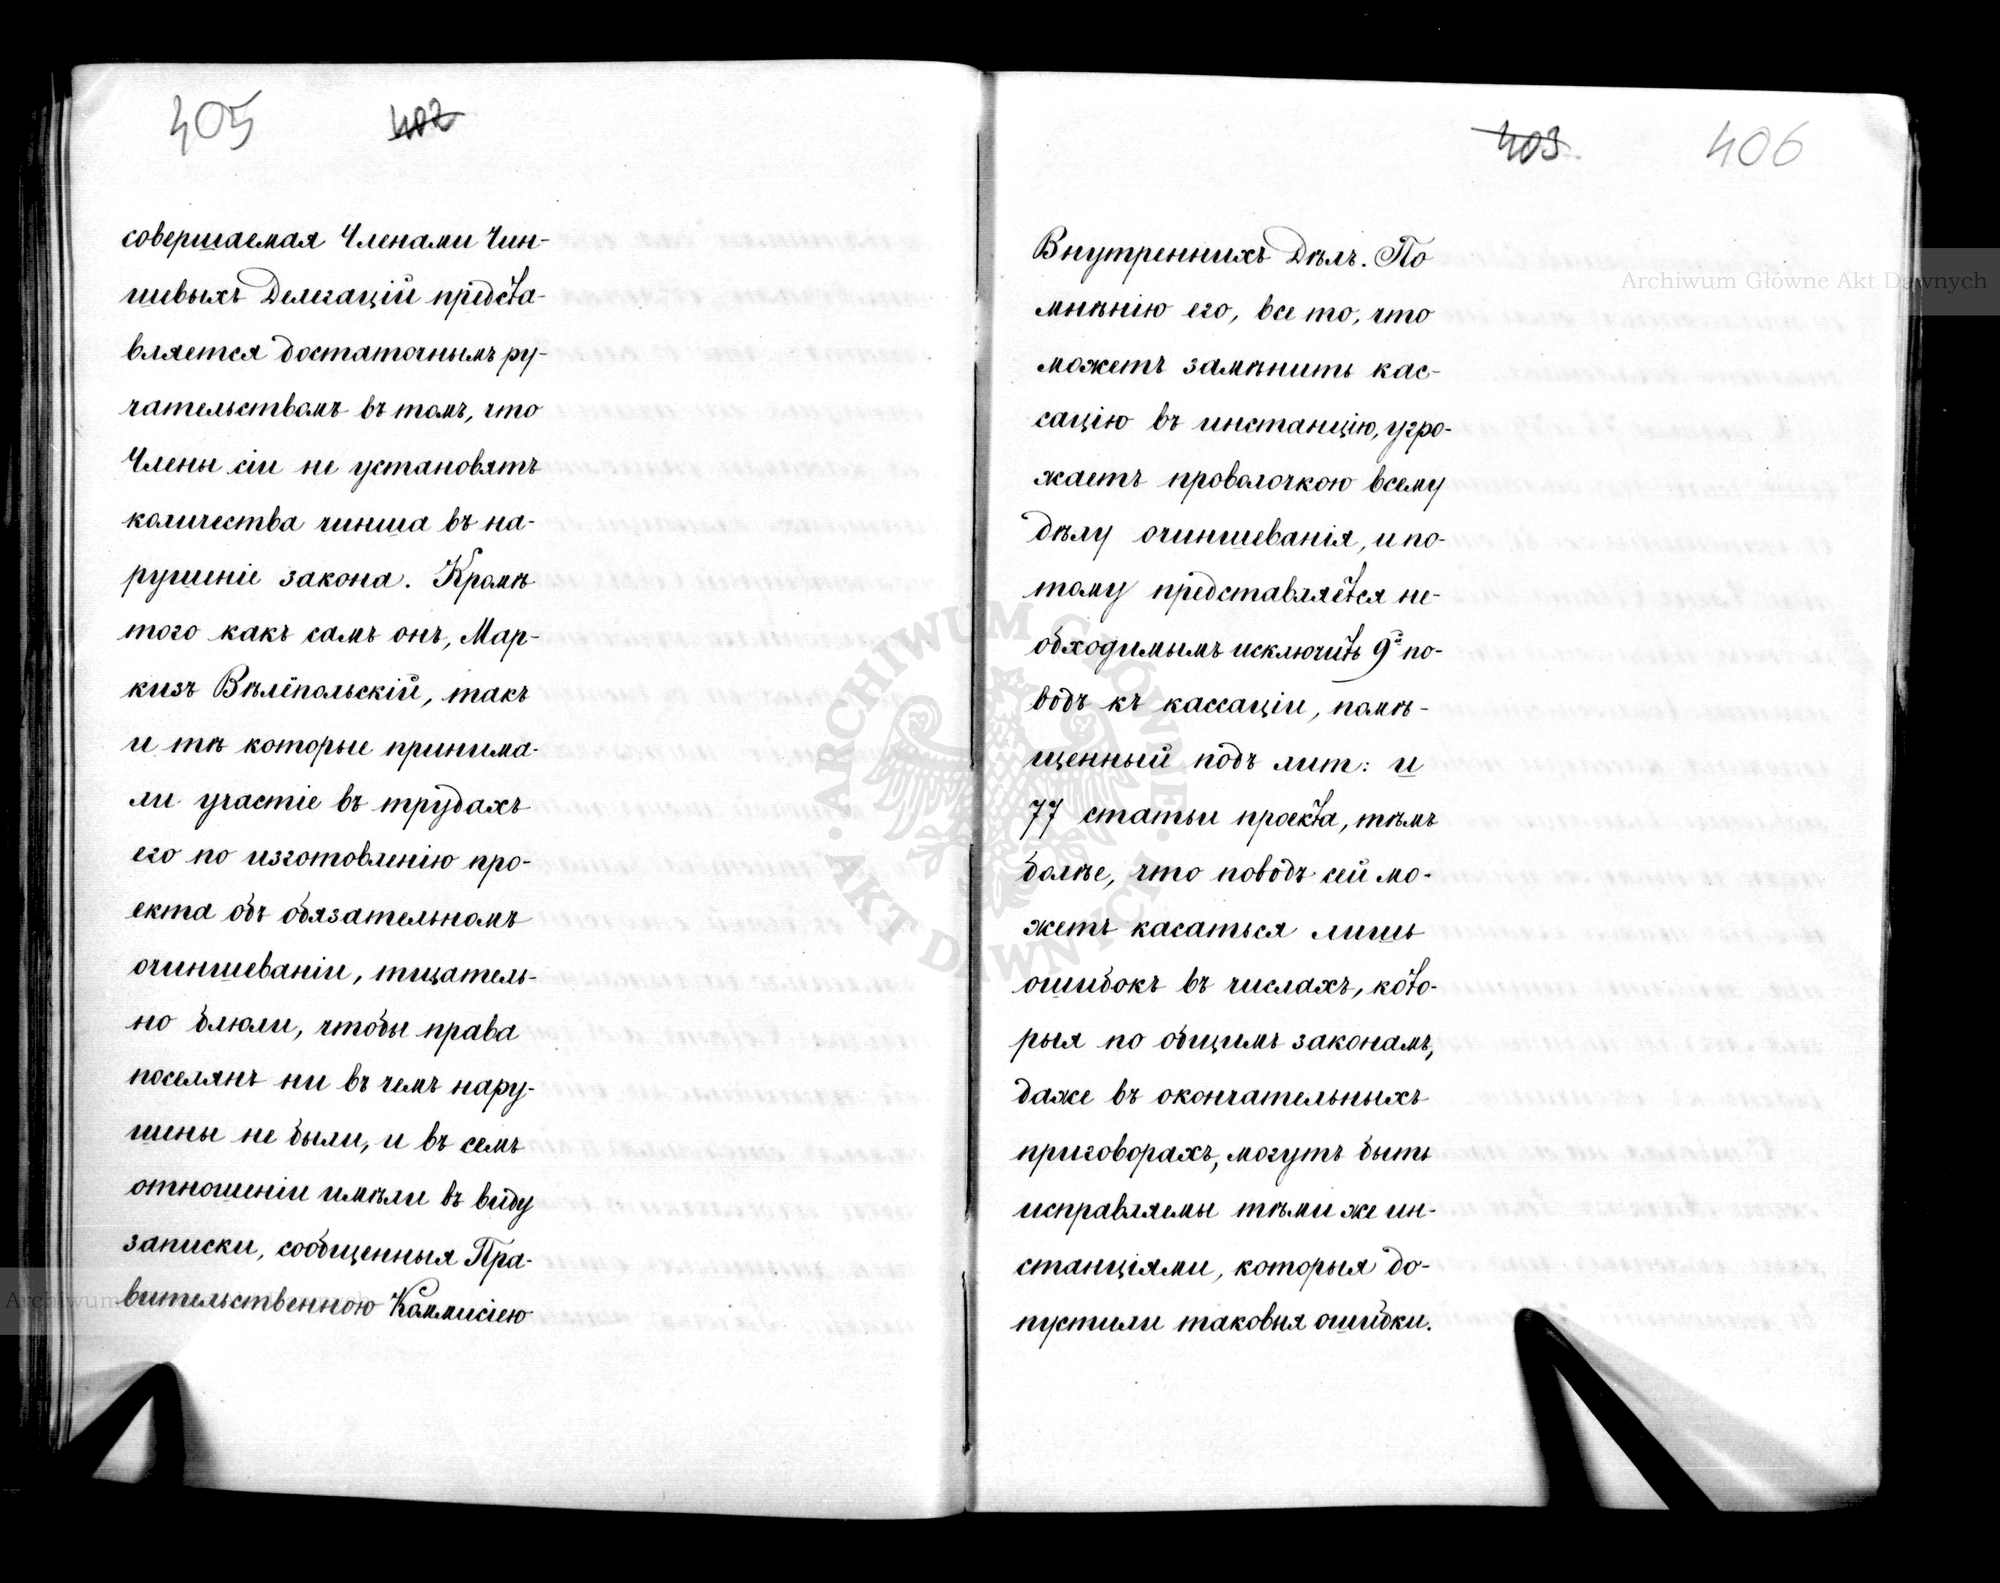 405 402
совершаемая Членами Чин-
шевыхъ Делегацій предста-
вляется достаточнымъ ру-
чательствомъ въ томъ, что
Члены сіи не установятъ
количества чинша въ на-
рушеніе закона. Кромѣ
того какъ самъ онъ, Мар-
кизъ Вѣлёпольскій, такъ
и тѣ которые принима-
ли участіе въ трудахъ
его по изготовленію про-
екта объ обязательномъ
очиншеваніи, тщатель-
но блюли, чтобы права
поселянъ ни въ чемъ нару-
шены не были, и въ семъ
отношеніи имѣли въ виду
записки, сообщенныя Пра-
вительственною Коммисіею
403 406
Внутреннихъ Дѣлъ. По
мнѣнію его, все то, что
можетъ замѣнить кас-
сацію въ инстанцію, угро-
жаетъ проволочкою всему
дѣлу очиншеванія, и по-
тому представляется не-
обходимымъ исключить 9й по-
водъ къ кассаціи, помѣ-
щенный подъ лит: и
77 статьи проекта, тѣмъ
болѣе, что поводъ сей мо-
жетъ касаться лишь
ошибокъ въ числахъ, кото-
рыя по общимъ законамъ,
даже въ окончательныхъ
приговорахъ, могутъ быть
исправляемы тѣми же ин-
станціями, которыя до-
пустили таковыя ошибки.
Archiwum Główne Akt Dawnych
ARCHIWUM GŁÓWNE AKT DAWNYCH